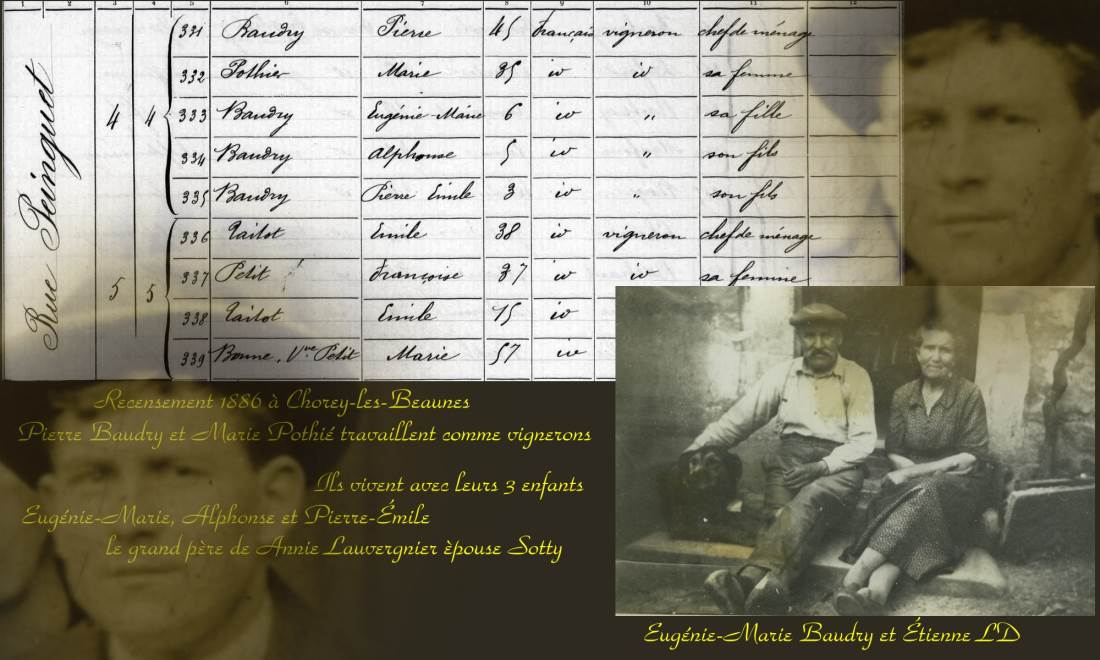 1 2 3 4 5 6 7 8 9 10 11 12
Rue Peinguet
4 4 331 Baudry Pierre 45 français vigneron chef de ménage
332 Pothier Marie 35 id id sa femme
333 Baudry Eugénie-Marie 6 id " sa fille
334 Baudry Alphonse 5 id " son fils
335 Baudry Pierre Emile 3 id " son fils
5 5 336 Tailot Emile 38 id vigneron chef de ménage
337 Petit Françoise 37 id id sa femme
338 Tailot Emile 15 id
339 Bonne, Vve Petit Marie 57 id
Recensement 1886 à Chorey-les-Beaunes
Pierre Baudry et Marie Pothié travaillent comme vignerons
Ils vivent avec leurs 3 enfants
Eugénie-Marie, Alphonse et Pierre-Émile
le grand père de Annie Lauvergnier èpouse Sotty
Eugénie-Marie Baudry et Étienne LD